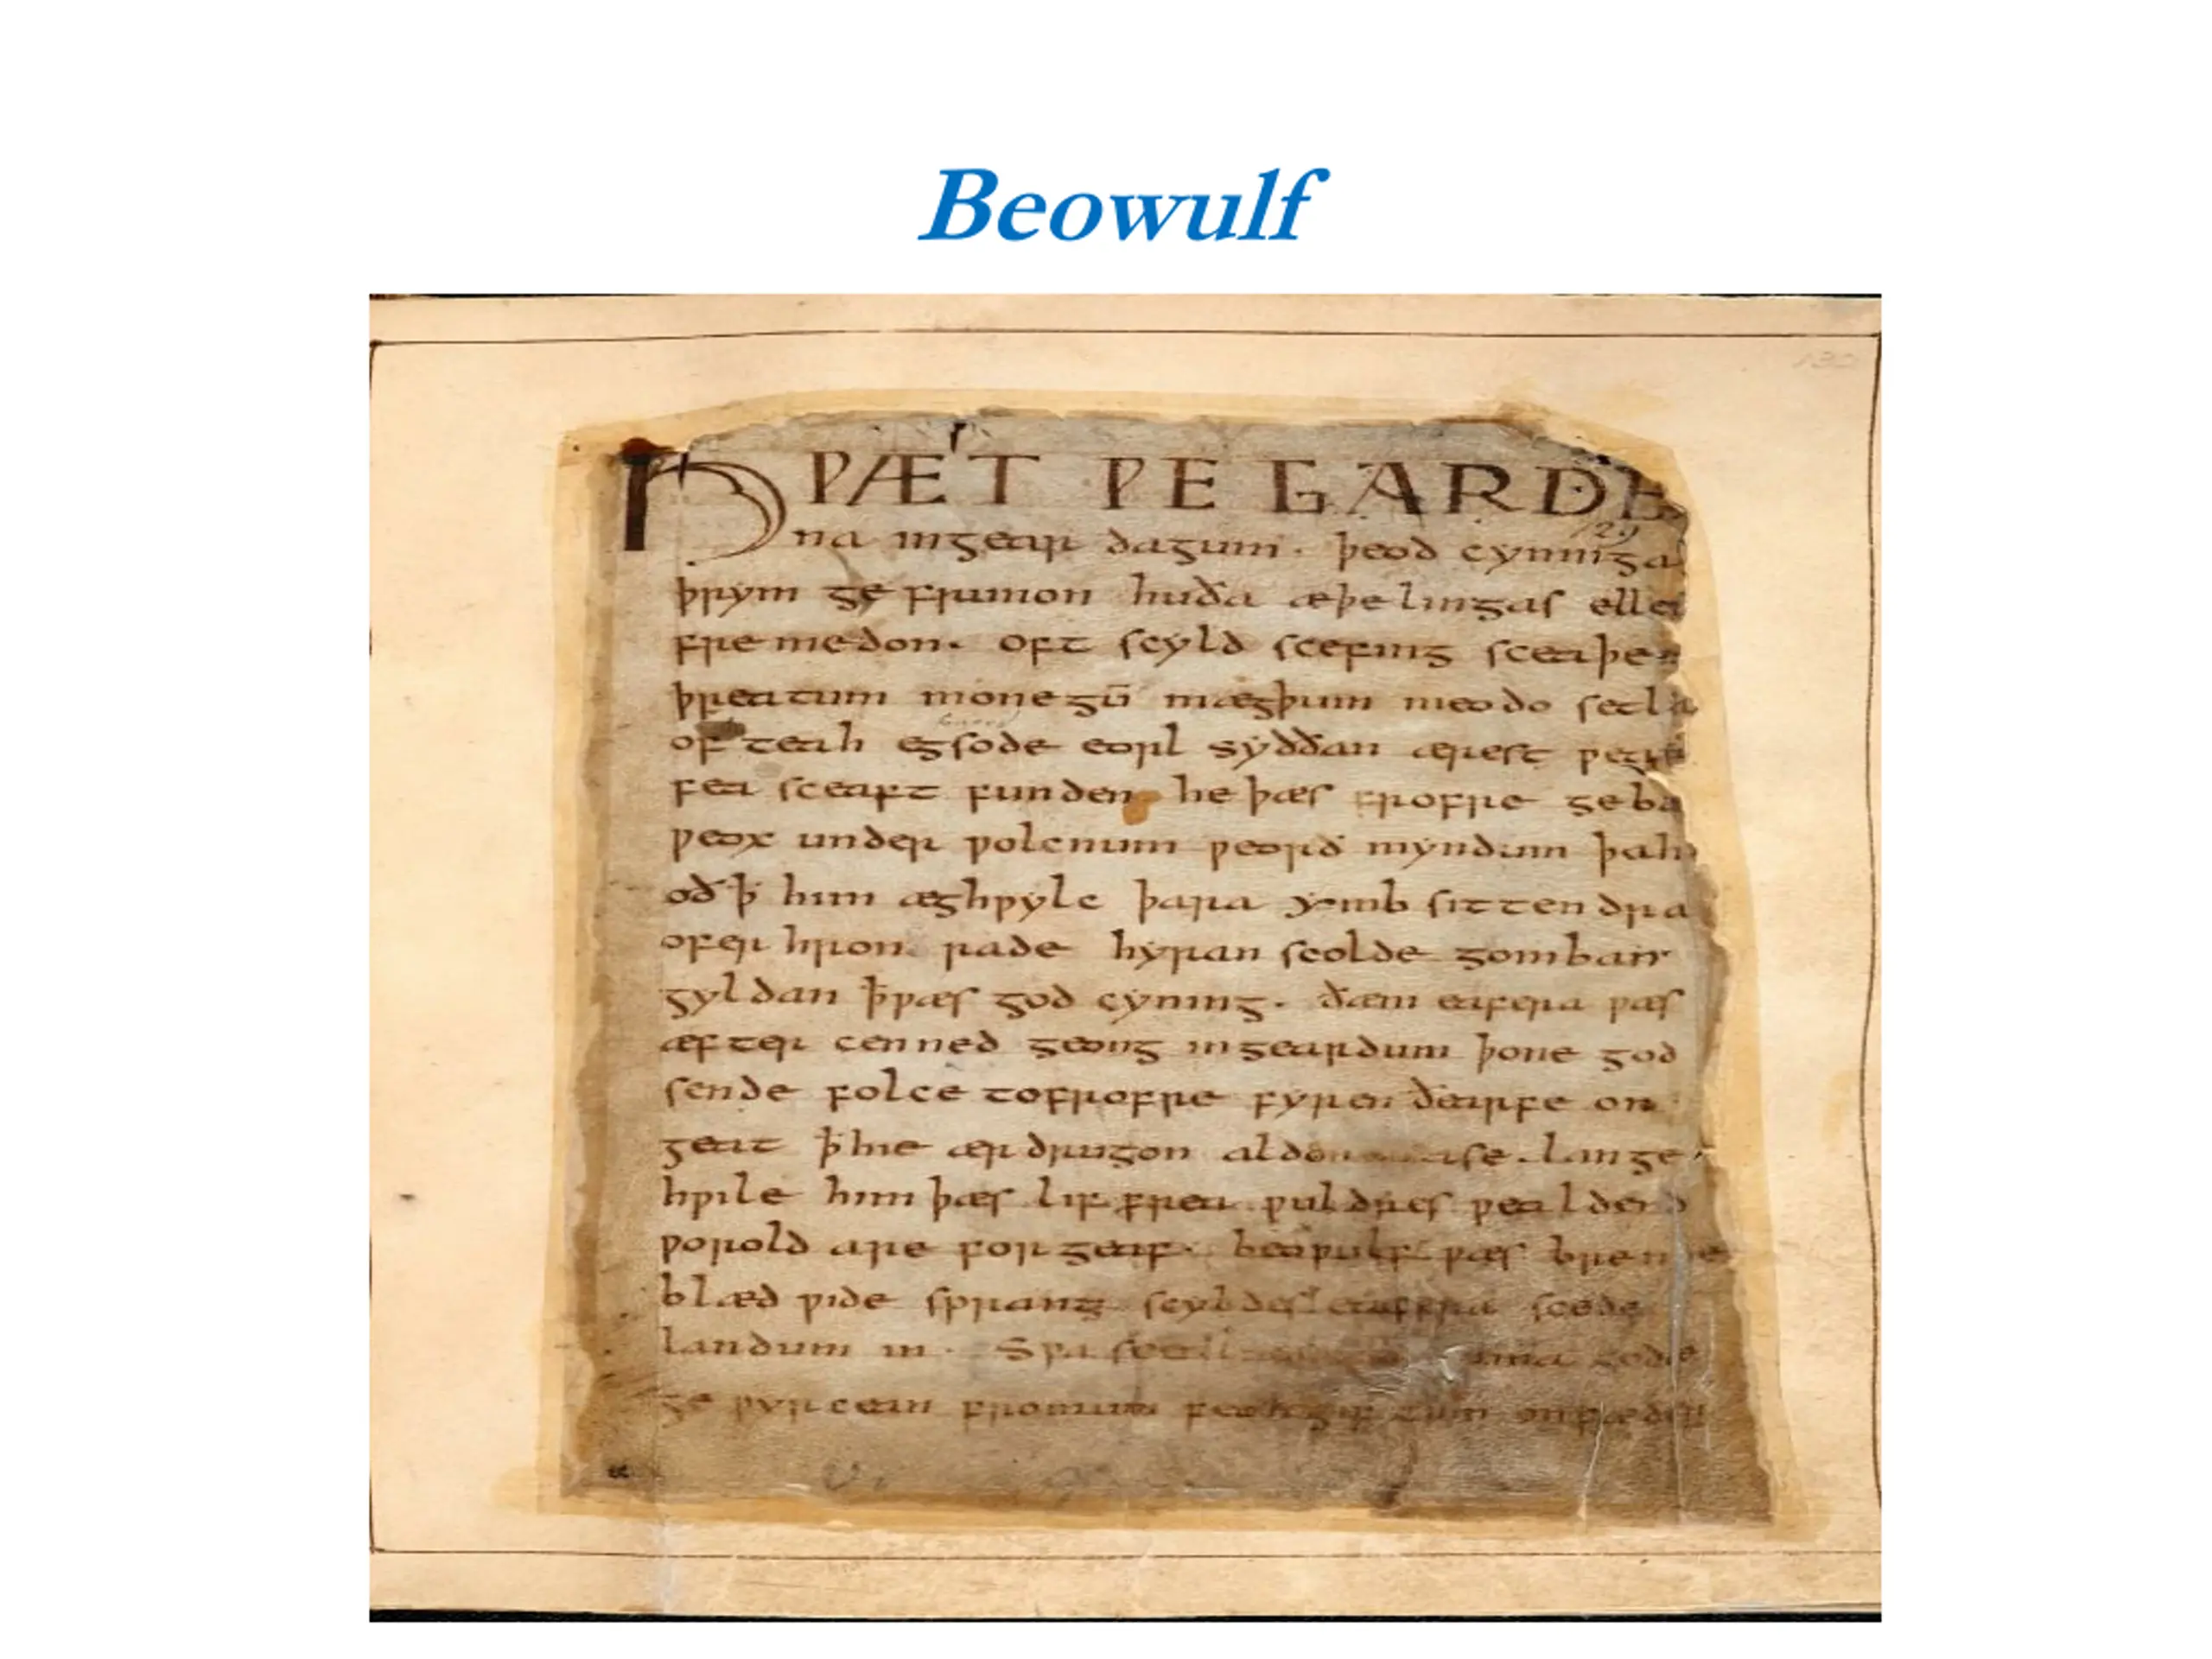 Beowulf
130
HǷÆT ǷE GARDE
129
na ingear dagum. þeod cyninga
þrym ge frunon huða æþelingas ellen
fre medon. oft scyld scefing sceaþen
þreatum monegū mægþum meodo setla
of teah egsode eorl syððan ærest ƿear
fea sceaft funden he þæs frofre geba
ƿeox under ƿolcnum ƿeorð myndum þah
oð ꝥ him æghƿylc þara ymb sittendra
ofer hron rade hyran scolde gomban
gyldan ꝥ ƿæs god cyning. ðæm eafera ƿæs
æfter cenned geong ingeardum þone god
sende folce tofrofre fyren ðearfe on
geat ꝥ hie ær drugon aldor ase. lange
hƿile him þæs lif frea ƿuldres ƿealdend
ƿorold are for geaf. beoƿulf ƿæs breme
blæd ƿide sprang scyldes eafera scede
landum in. Sƿa sceal ma gode
ge ƿyrcean fromum feoh giftum onfæder